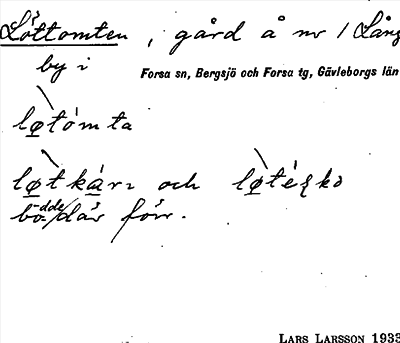 Löttomten, gård å nr 1 Lång
by i
Forsa sn, Bergsjö och Forsa tg, Gävleborgs län
lo̲tòmta
lo̲tká̲rı och lo̲té
bodde/där förr.
LARS LARSSON 1933